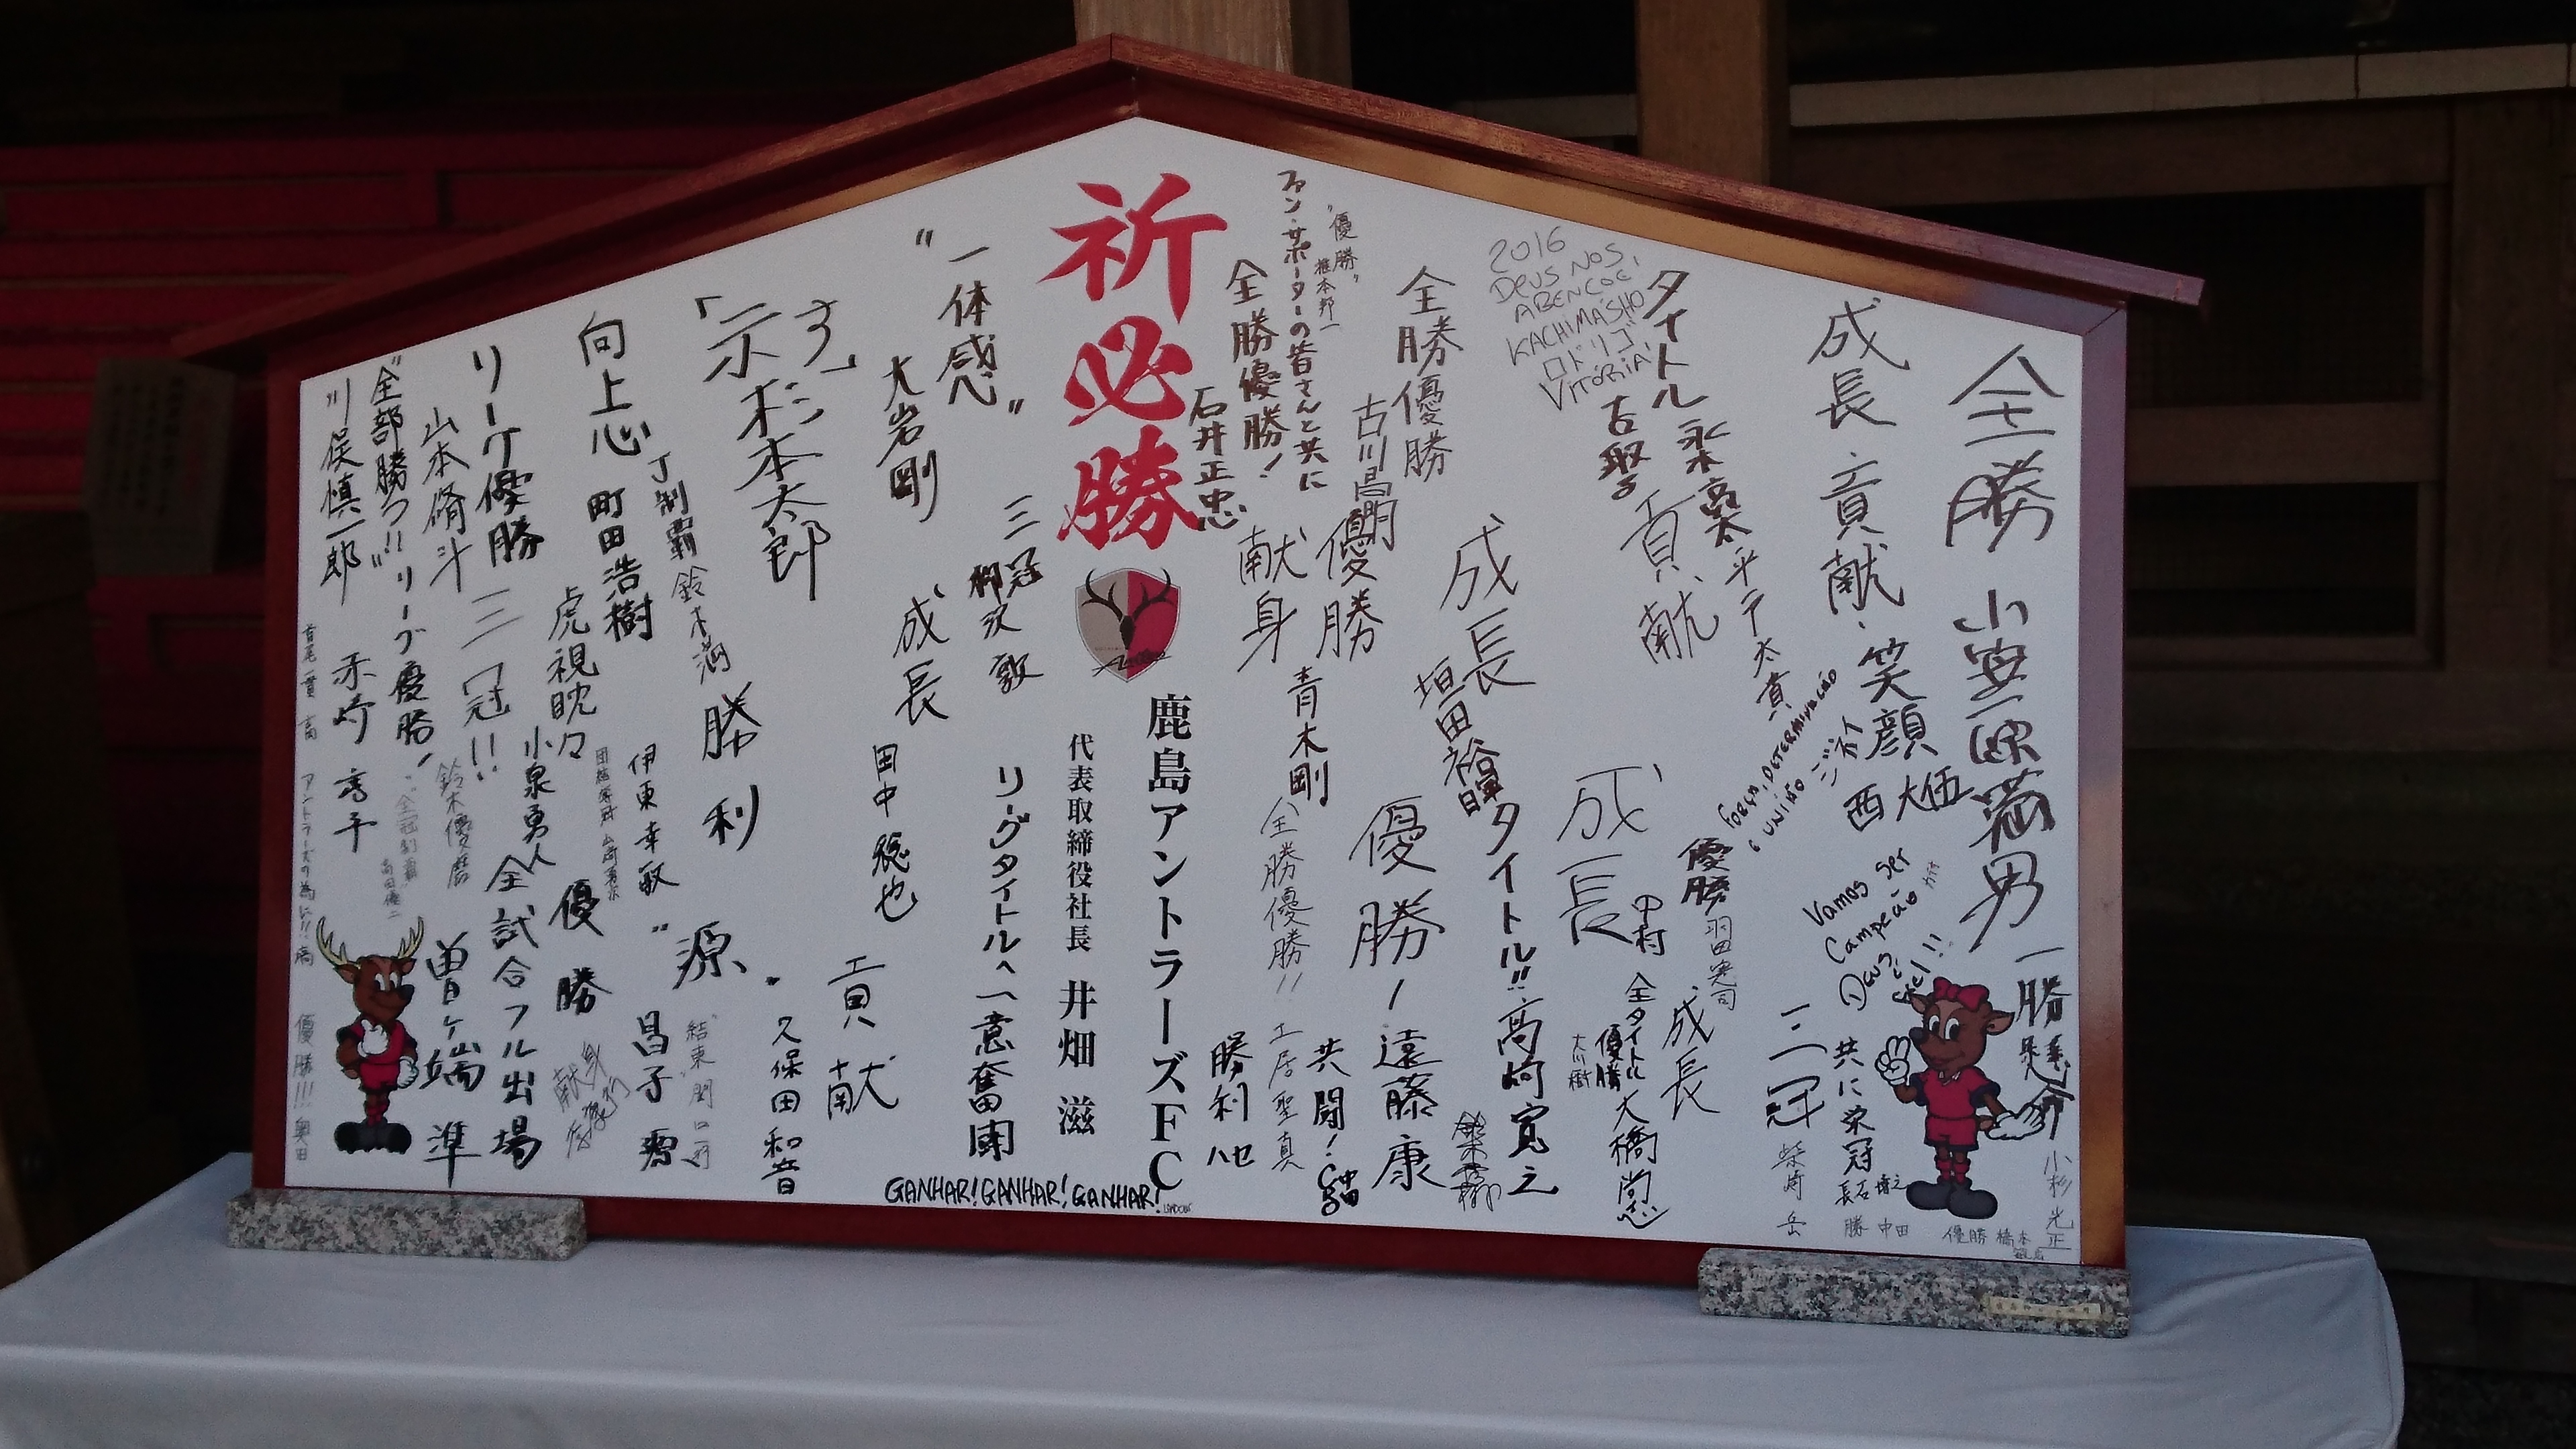 祈必勝
鹿島アントラーズFC
代表取締役社長 井畑 滋
全勝 小笠原満男
一勝懸命
小杉光正
成長 貢献
笑顔
西 大伍
Vamos ser
Campeão
Deus é
fiel!!
共に栄冠
長石博之
優勝 橋本
勝 中田
三冠
柴崎 岳
タイトル
永木亮太
平戸太貴
FORÇA, DETERMINAÇÃO
UNIÃO
2016
DEUS NOS
ABENÇOE!
KACHIMASHO
ロドリゴ
VITÓRIA!
貢献
優勝
羽田憲司
成長
大橋尚志
全タイトル
優勝
成長
中村
成長
垣田裕暉
タイトル!!
高崎寛之
全勝優勝
古川昌明
優勝
優勝!
遠藤康
"優勝"
椎本邦一
ファン・サポーターの皆さんと共に
全勝優勝!
石井正忠
献身
青木剛
全勝優勝!!
土居聖真
共闘!
勝利
リーグタイトルへ一意奮闘
三冠
柳沢敦
"一体感"
大岩剛
成長
田中稔也
貢献
久保田和音
GANHAR! GANHAR! GANHAR!
「示す」
杉本太郎
J制覇
鈴木満
勝利
"源"
昌子源
向上心
町田浩樹
伊東幸敏
虎視眈々
小泉勇人
優勝
全試合フル出場
曽ケ端準
リーグ優勝
山本脩斗
三冠!!
鈴木優磨
"全部勝つ!!"
川俣慎一郎
リーグ優勝!
赤崎秀平
首尾一貫
アントラーズの為に!!
優勝!!! 奥田